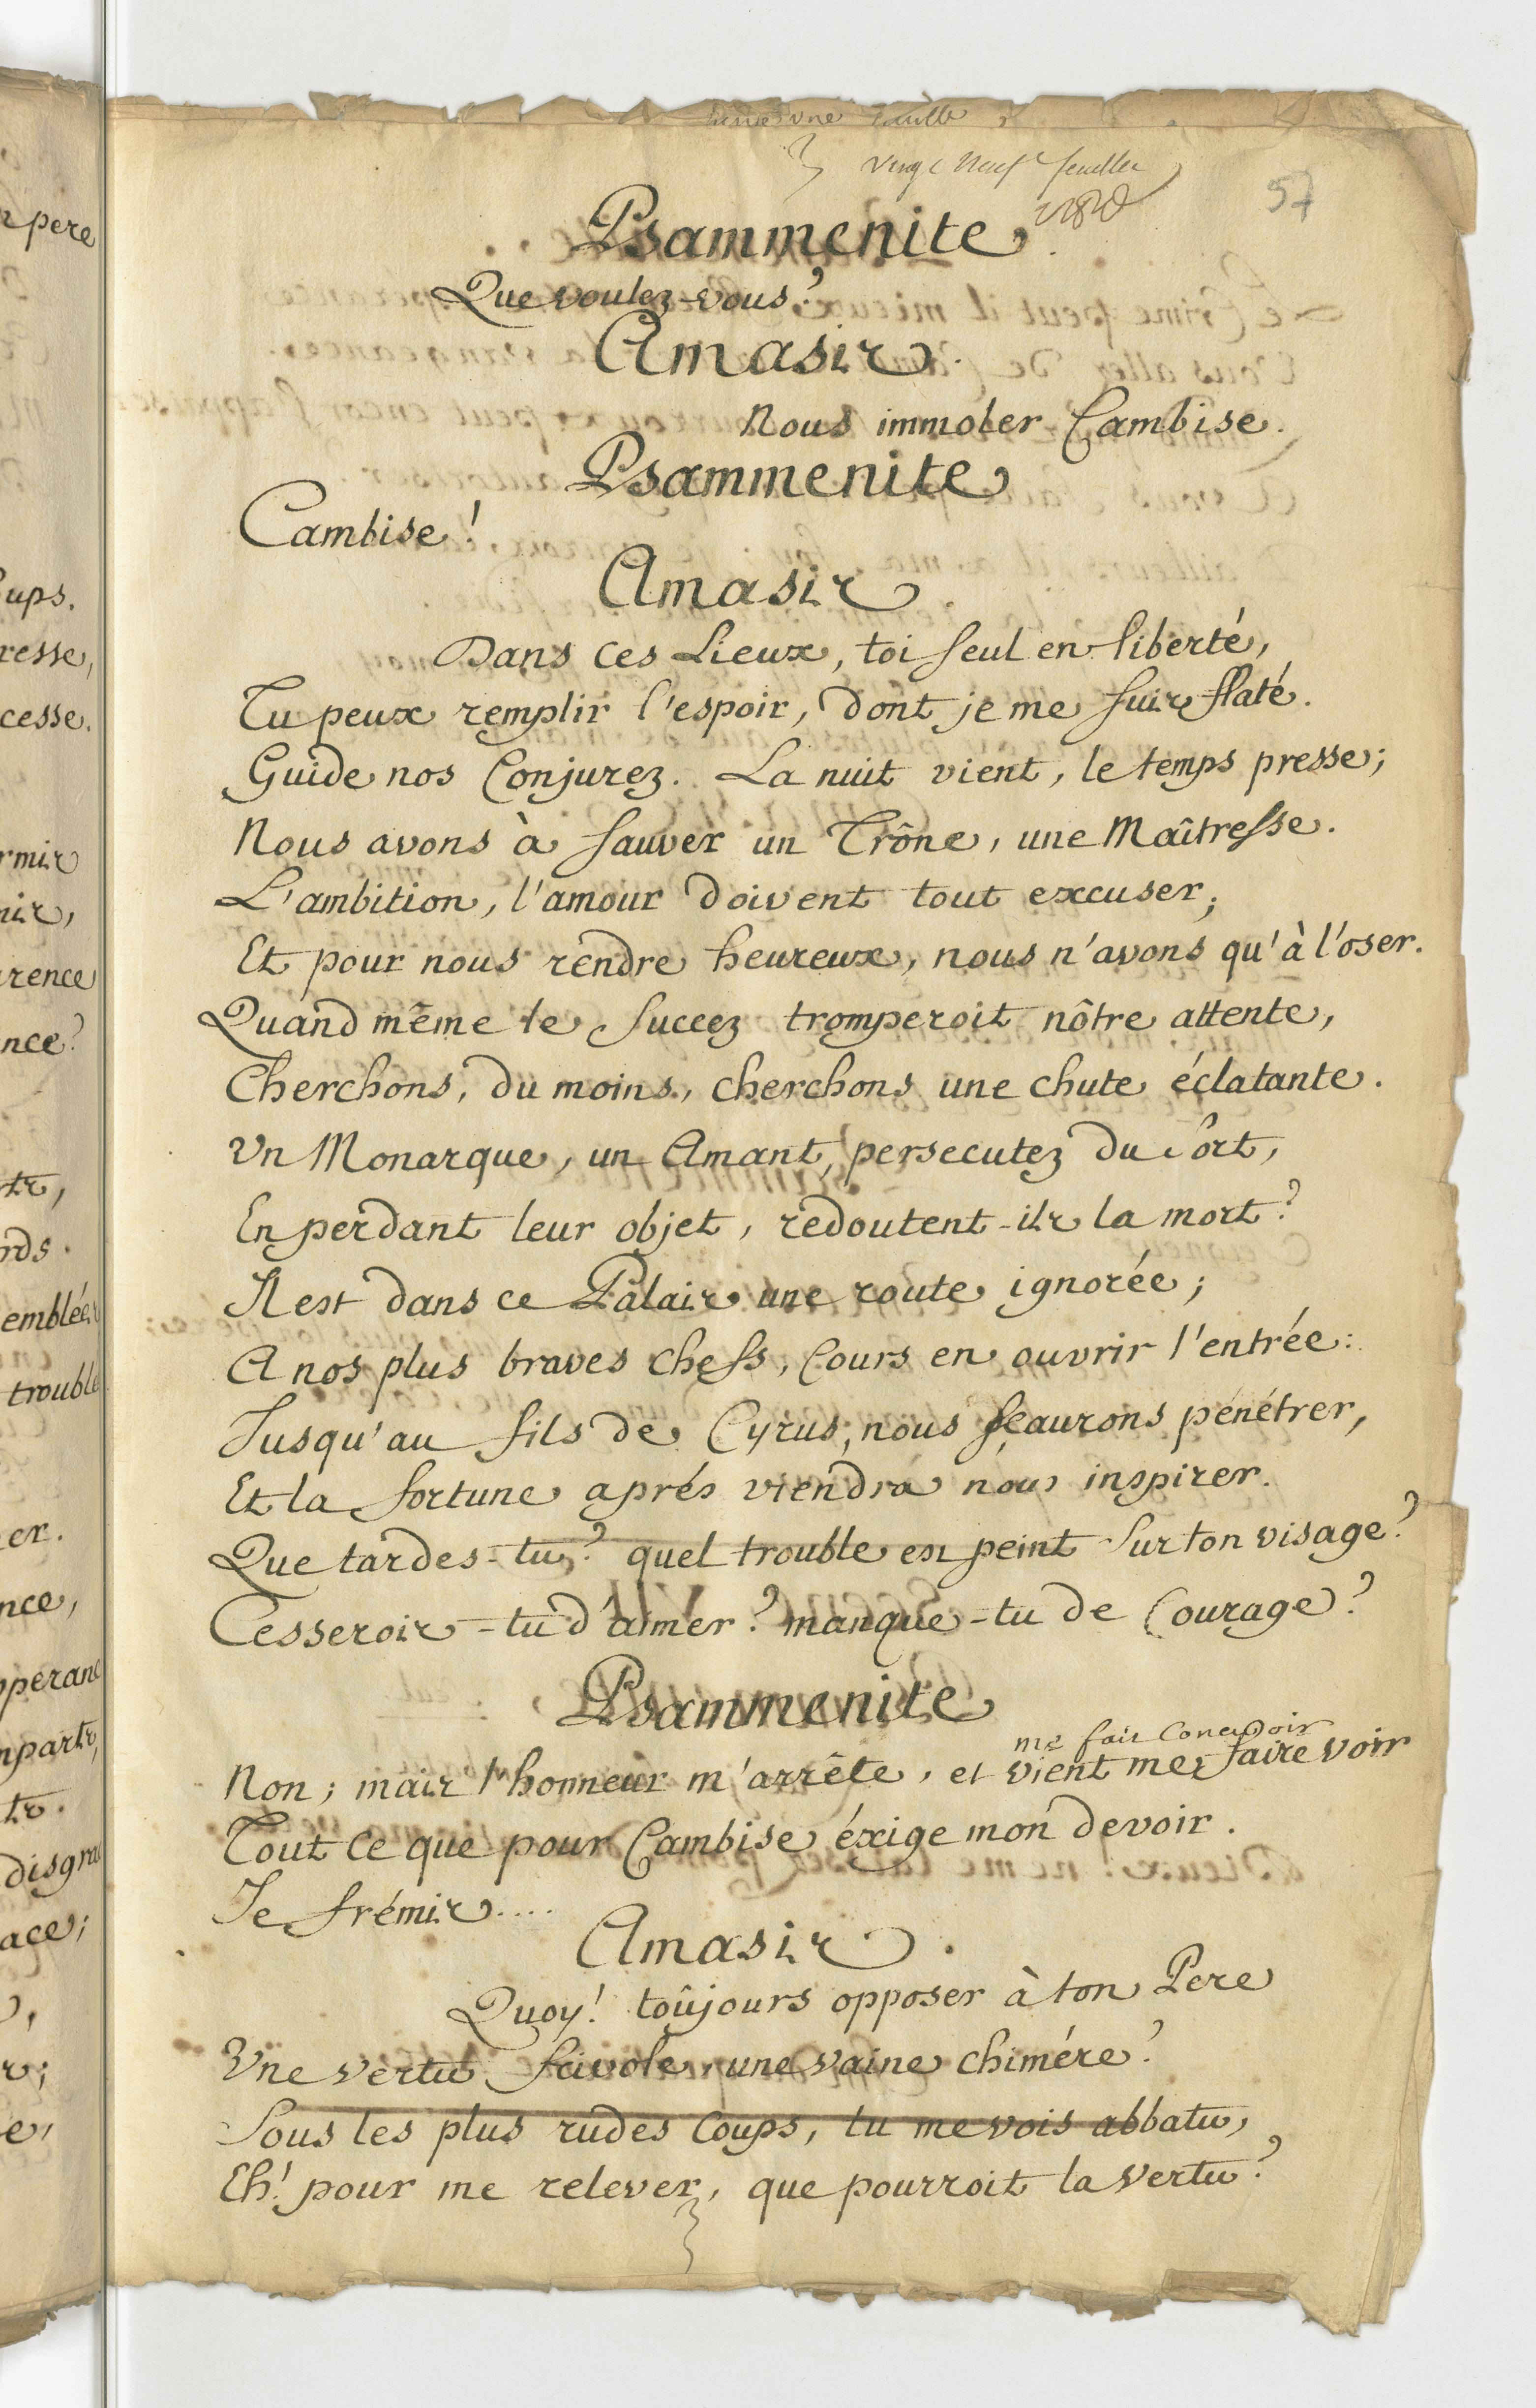 vingt Neuf feuillet
57
Psammenite
Que voulez-vous?
Amasis.
Nous immoler Cambise.
Psammenite
Cambise!
Amasis
Dans ces Lieux, toi seul en liberté,
Tu peux remplir l'espoir, dont je me suis flaté.
Guide nos Conjurez. La nuit vient, le temps presse;
Nous avons à sauver un Trône, une Maîtresse.
L'ambition, l'amour doivent tout excuser;
Et pour nous rendre heureux, nous n'avons qu'à l'oser.
Quand même le succez tromperoit nôtre attente,
Cherchons, du moins, cherchons une chute éclatante.
Un Monarque, un Amant, persecutez du sort,
En perdant leur objet, redoutent-ils la mort?
Il est dans ce Palais une route ignorée;
A nos plus braves chefs, Cours en ouvrir l'entrée:
Jusqu'au fils de Cyrus, nous sçaurons pénétrer,
Et la fortune aprés viendra nous inspirer.
Que tardes-tu? quel trouble est peint sur ton visage?
Cesserois-tu d'aimer? manque-tu de Courage?
Psammenite
me fait Concevoir
Non; mais l'honneur m'arrête, et vient me faire voir
Tout ce que pour Cambise éxige mon devoir.
Je frémis....
Amasis.
Quoy! toûjours opposer à ton Pere
Une vertu frivole, une vaine chimére?
Sous les plus rudes Coups, tu me vois abbatu,
Eh! pour me relever, que pourroit la vertu?